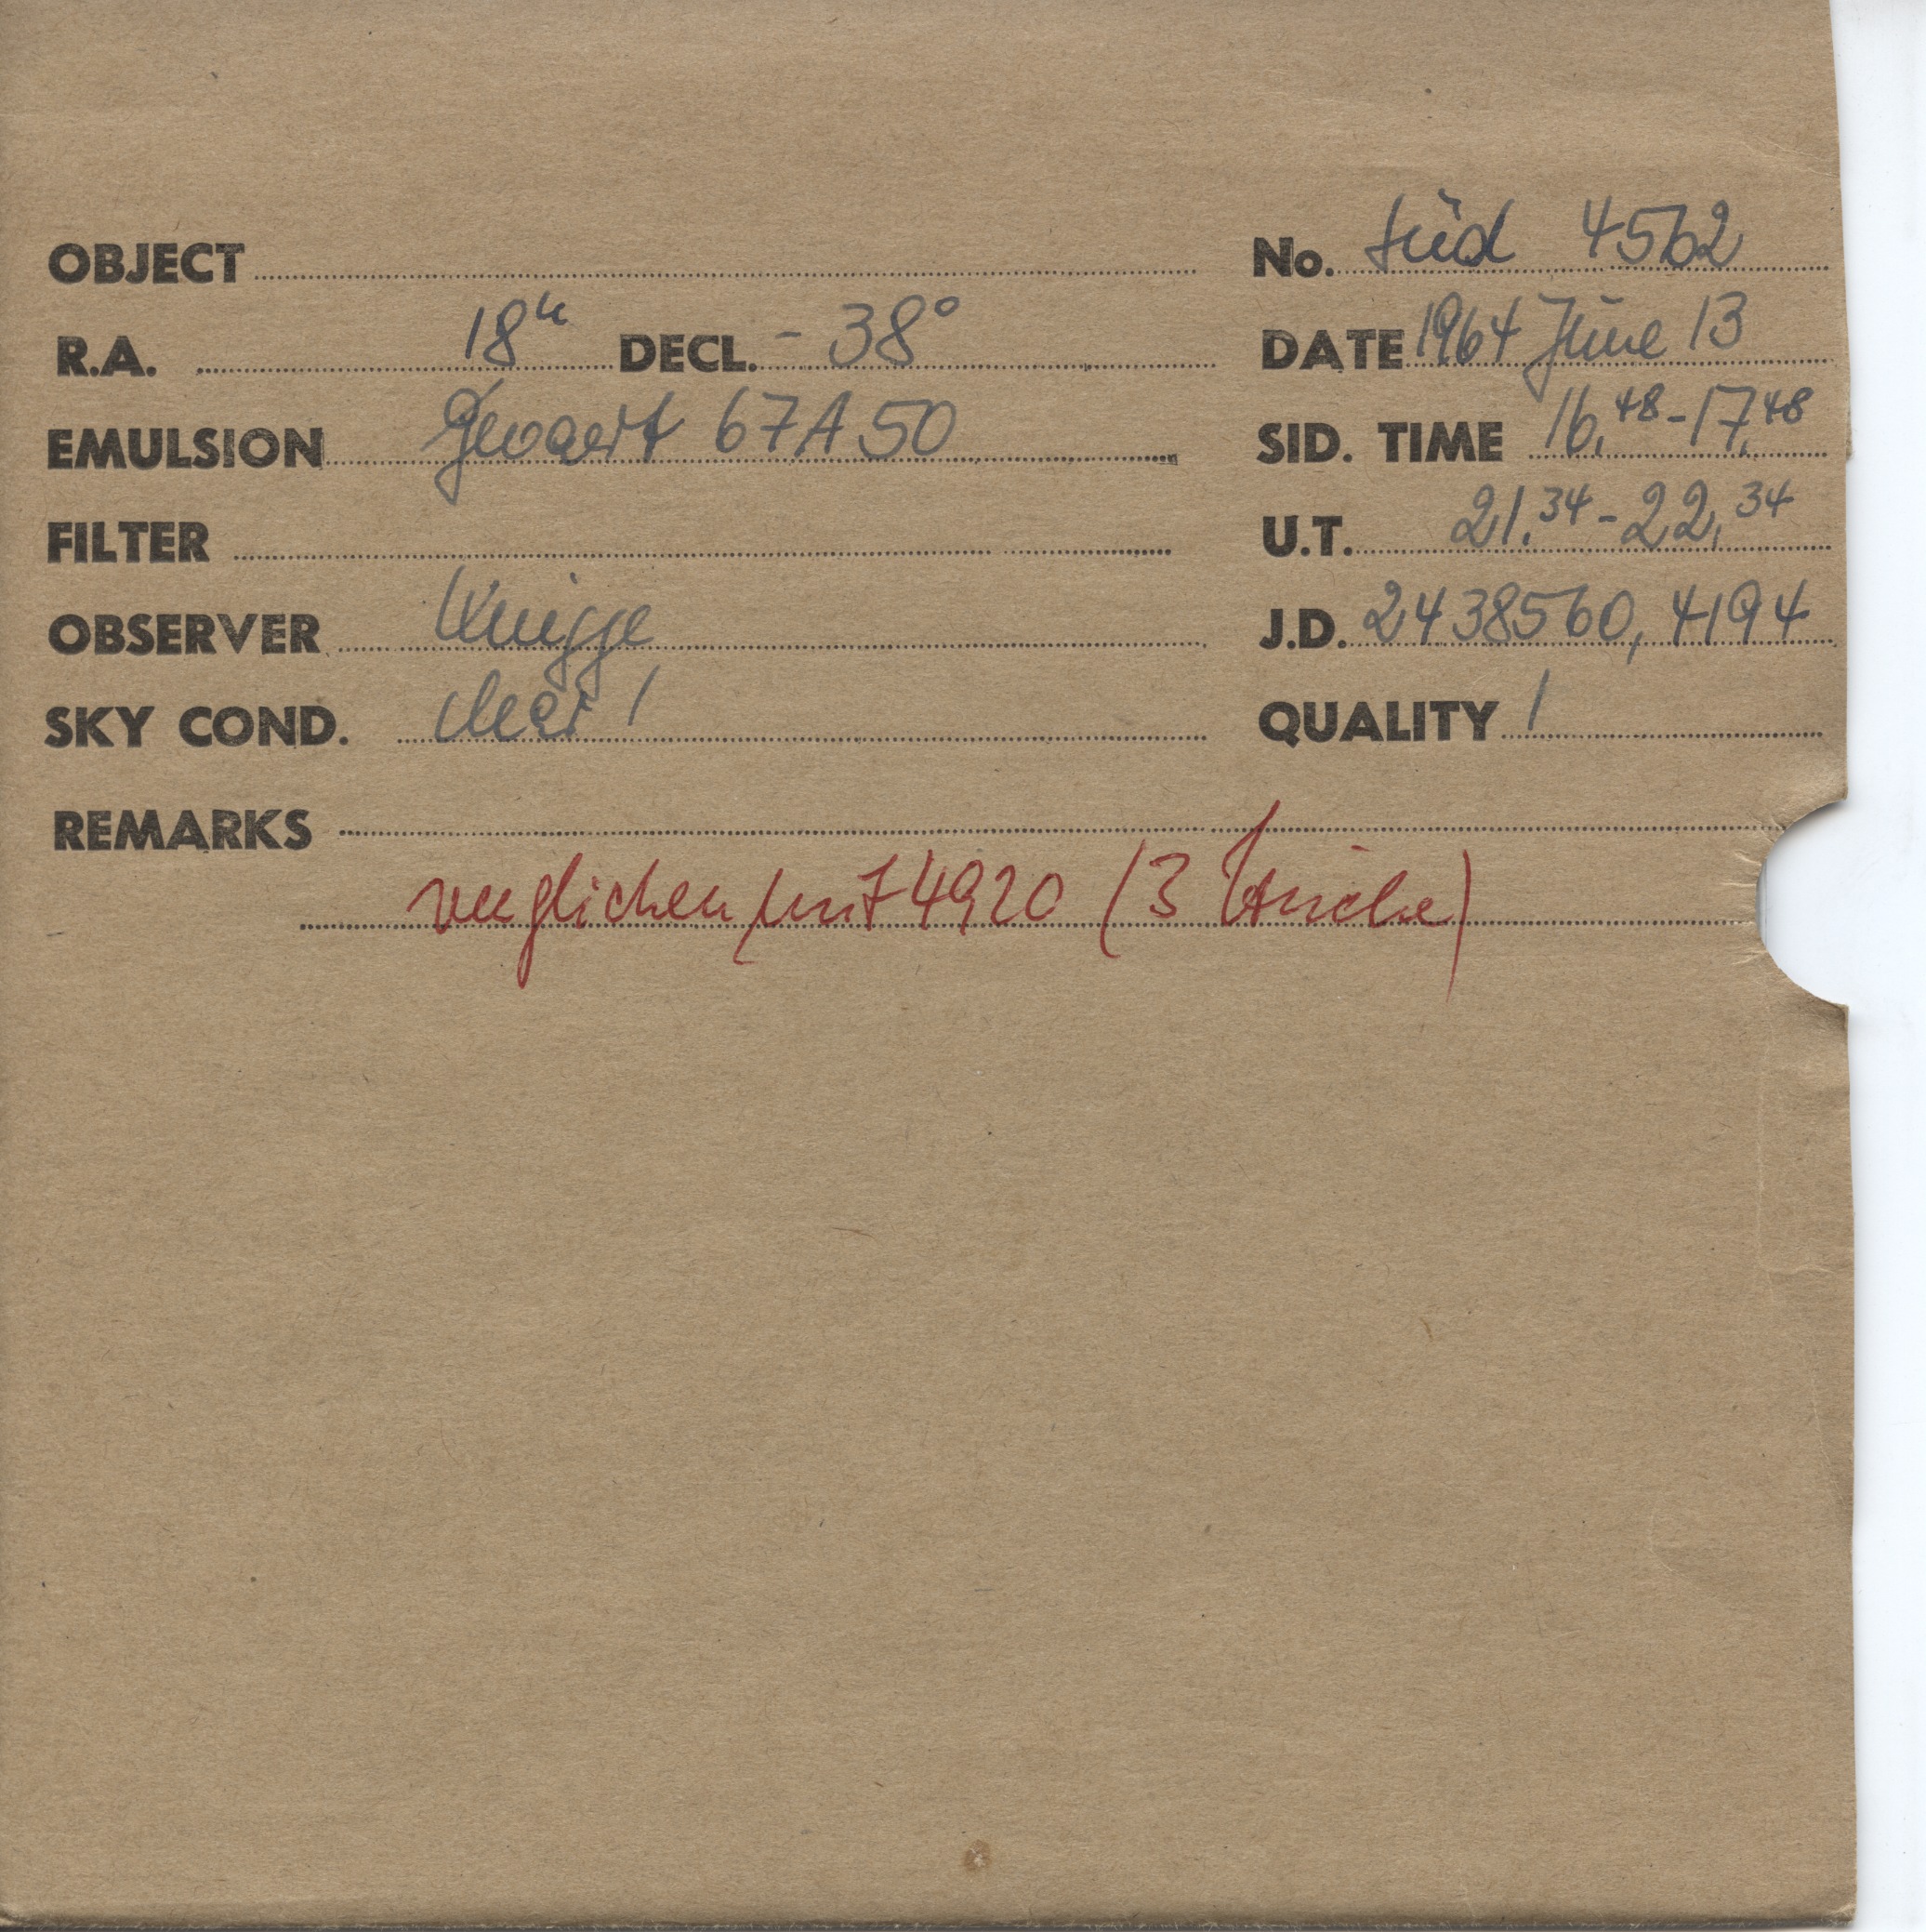 OBJECT
No. Süd 4562
R.A. 18h DECL. - 38°
DATE 1964 June 13
EMULSION Gevaert 67A50
SID. TIME 16,48-17,48
FILTER
U.T. 21.34-22,34
OBSERVER Knigge
J.D. 2438560,4194
SKY COND. clear 1
QUALITY 1
REMARKS
verglichen mit 4920 (3 Striche)